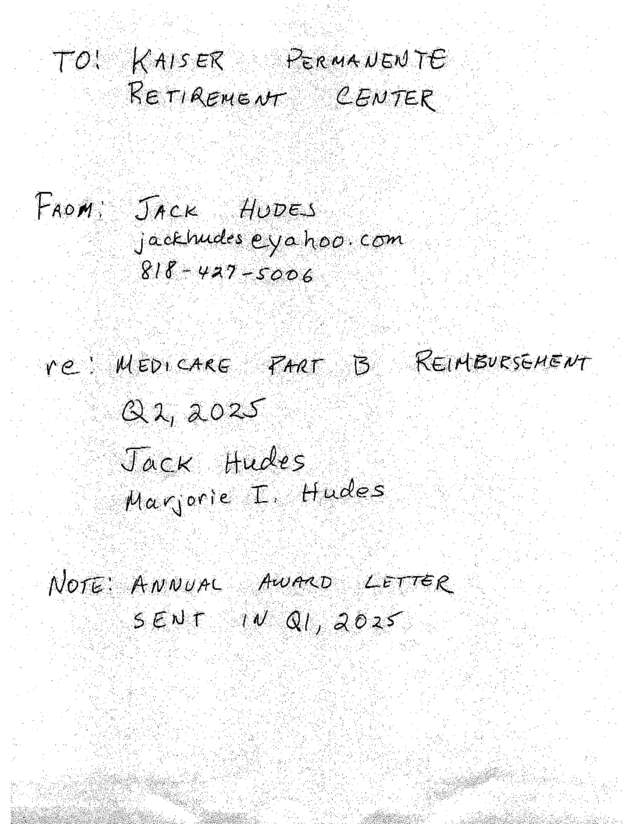 TO: KAISER PERMANENTE
RETIREMENT CENTER
FROM: JACK HUDES
jackhudes@yahoo.com
818-427-5006
re: MEDICARE PART B REIMBURSEMENT
Q2, 2025
Jack Hudes
Marjorie I. Hudes
NOTE: ANNUAL AWARD LETTER
SENT IN Q1, 2025